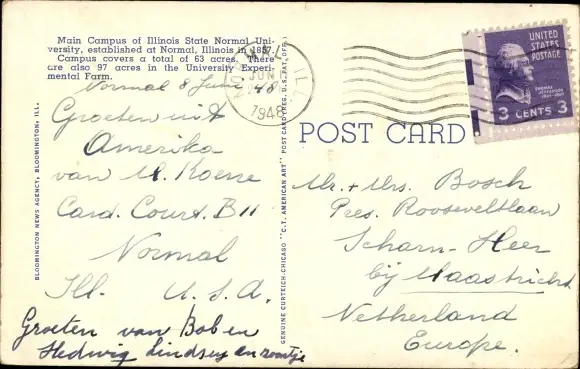 Main Campus of Illinois State Normal Uni-
versity, established at Normal, Illinois in 1857.
Campus covers a total of 63 acres. There
are also 97 acres in the University Experi-
mental Farm.
Normal 8 June '48
Groeten uit
Amerika
van M. Koene
Card. Court. B11
Normal
Ill. U.S.A.
Groeten van Bob en
Hedwig Lindsey en zoontje
BLOOMINGTON NEWS AGENCY, BLOOMINGTON, ILL.
GENUINE CURTEICH-CHICAGO "C.T. AMERICAN ART" POST CARD (REG. U.S. PAT. OFF.)
NORMAL ILL.
JUN
1948
UNITED STATES
POSTAGE
THOMAS
JEFFERSON
3 CENTS 3
POST CARD
Mr. + Mrs. Bosch
Pres. Rooseveltlaan
Scharn-Heer
bij Maastricht
Netherland
Europe.